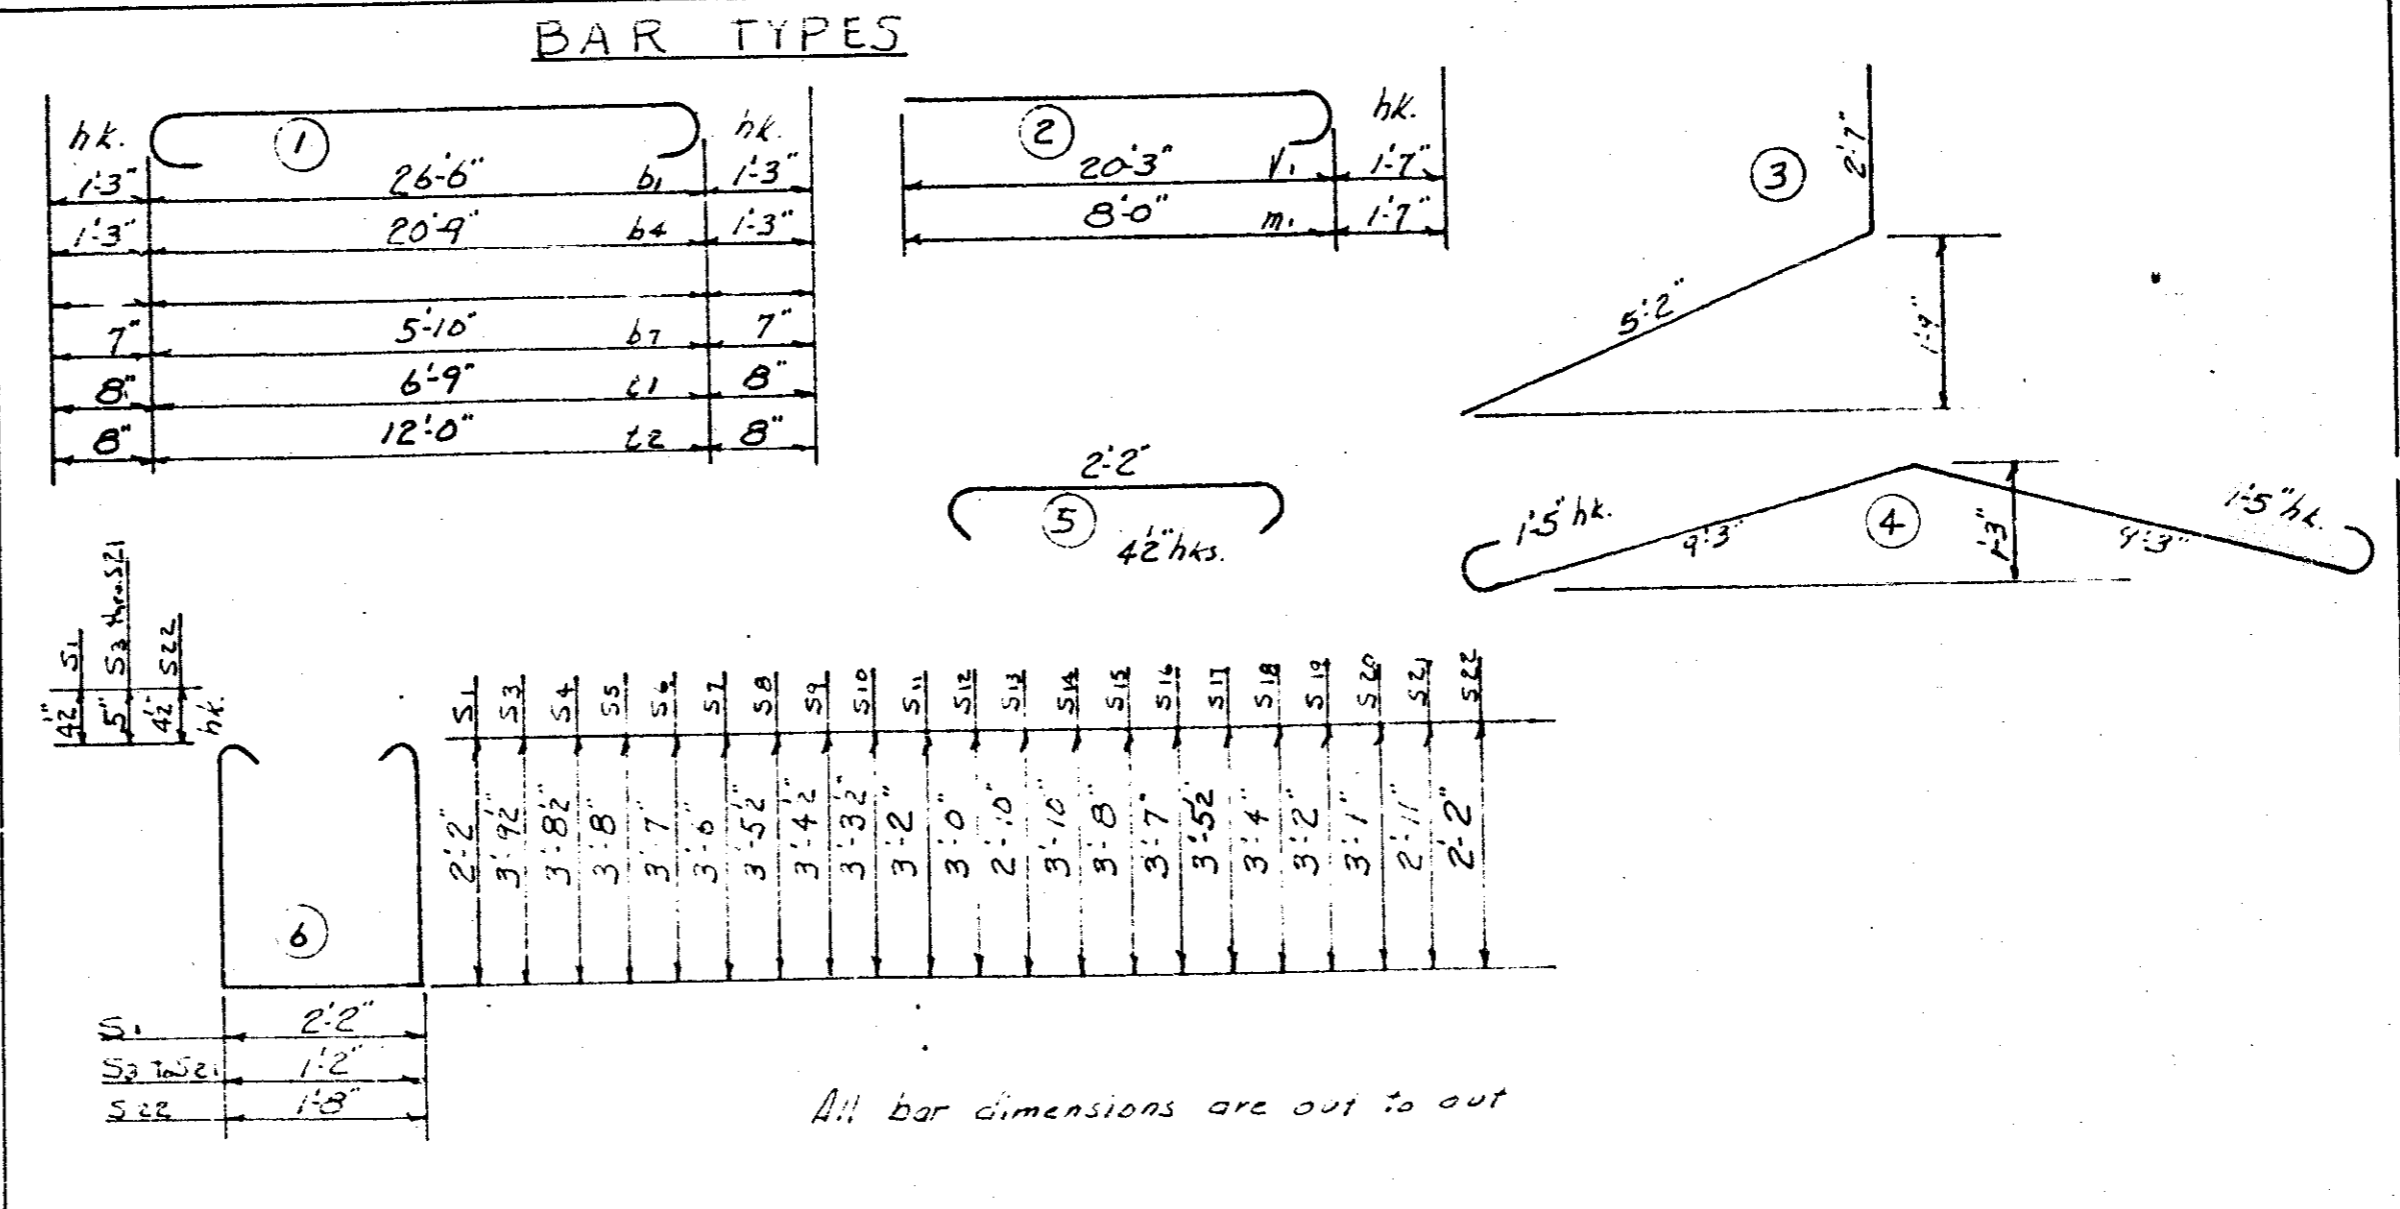 BAR TYPES
hk. 1 hk.
1'-3" 26'-6" b1 1'-3"
1'-3" 20'-9" b4 1'-3"
7" 5'-10" b7 7"
8" 6'-9" t1 8"
8" 12'-0" t2 8"
2 hk.
20'-3" V1 1'-7"
8'-0" m1 1'-7"
3
2'-7"
5'-2"
2'-2"
5
4½" hks.
1'-5" hk. 4 1'-5" hk.
9'-3" 1'-3" 9'-3"
S1 S3 thru S21 S22
4½" 5" 4½" hk.
S1 S3 S4 S5 S6 S7 S8 S9 S10 S11 S12 S13 S14 S15 S16 S17 S18 S19 S20 S21 S22
2'-2" 3'-9½" 3'-8½" 3'-8" 3'-7" 3'-6" 3'-5½" 3'-4½" 3'-3½" 3'-2" 3'-0" 2'-10" 3'-10" 3'-8" 3'-7" 3'-5½" 3'-4" 3'-2" 3'-1" 2'-11" 2'-2"
6
S1 2'-2"
S3 To S21 1'-2"
S22 1'-8"
All bar dimensions are out to out